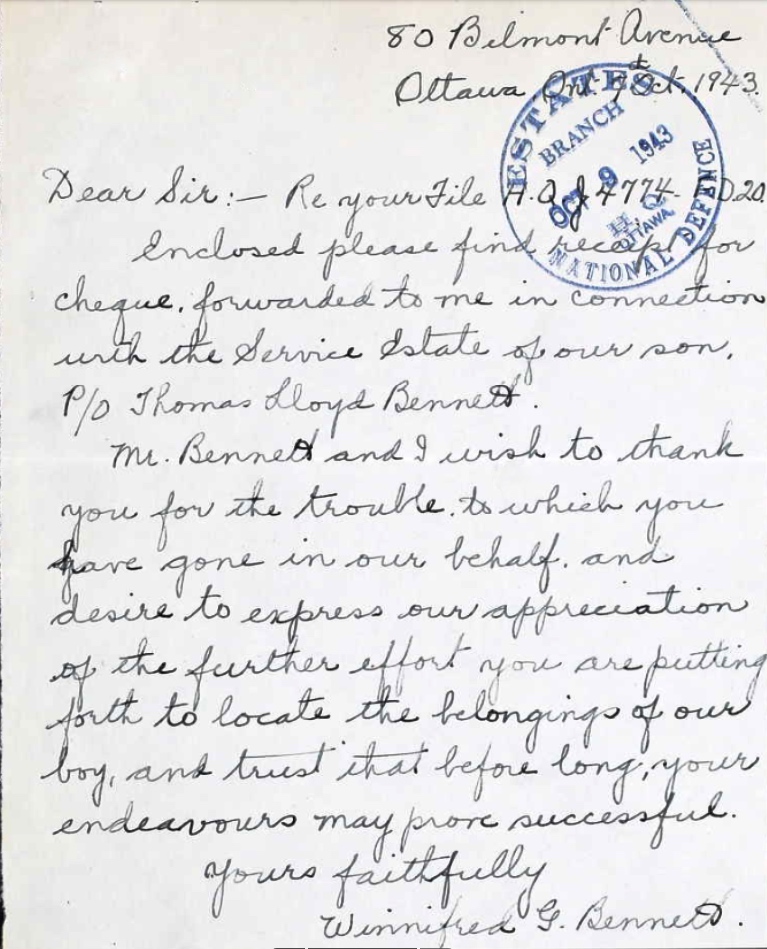 80 Belmont Avenue
Ottawa Ont. 7 Oct. 1943.
ESTATES
BRANCH
OCT 9 1943
H. Q.
OTTAWA.
NATIONAL DEFENCE
Dear Sir:— Re your File H.Q. J 4774 D20.
Enclosed please find receipt for
cheque, forwarded to me in connection
with the Service Estate of our son,
P/O Thomas Lloyd Bennett.
Mr. Bennett and I wish to thank
you for the trouble, to which you
have gone in our behalf, and
desire to express our appreciation
of the further effort you are putting
forth to locate the belongings of our
boy, and trust that before long, your
endeavours may prove successful.
Yours faithfully
Winnifred G. Bennett.